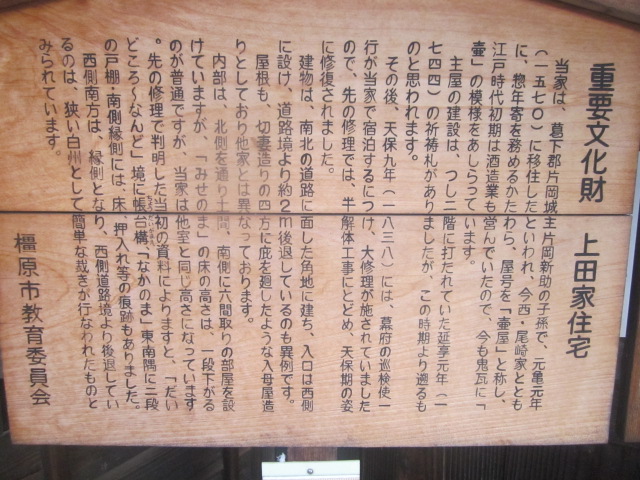 重要文化財　上田家住宅
当家は、葛下郡片岡城主片岡新助の子孫で、元亀元年
(一五七〇)に移住したといわれ、今西・尾崎家ととも
に、惣年寄を務めるかたわら、屋号を「壷屋」と称し、
江戸時代初期は酒造業も営んでいたので、今も鬼瓦に「
壷」の模様をあしらっています。
主屋の建設は、つし二階に打たれていた延享元年(一
七四四)の祈祷札がありましたが、この時期より遡るも
のと思われます。
その後、天保九年(一八三八)には、幕府の巡検使一
行が当家で宿泊するにつけ、大修理が施されていました
ので、先の修理では、半解体工事にとどめ、天保期の姿
に修復されました。
建物は、南北の道路に面した角地に建ち、入口は西側
に設け、道路境より約2m後退しているのも異例です。
屋根も、切妻造りの四方に庇を廻したような入母屋造
りとしており他家とは異なっております。
内部は、北側を通り土間、南側に六間取りの部屋を設
けていますが、「みせのま」の床の高さは、一段下がる
のが普通ですが、当家は他室と同じ高さになっています
。先の修理で判明した当初の資料によりますと、「だい
どころ〜なんど」境に帳台構「なかのま」東南隅に二段
の戸棚・南側縁側には、床、押入れ等の痕跡もありました。
西側南方は、縁側となり、西側道路境より後退してい
るのは、狭い白州として簡単な裁きが行なわれたものと
みられています。
橿原市教育委員会